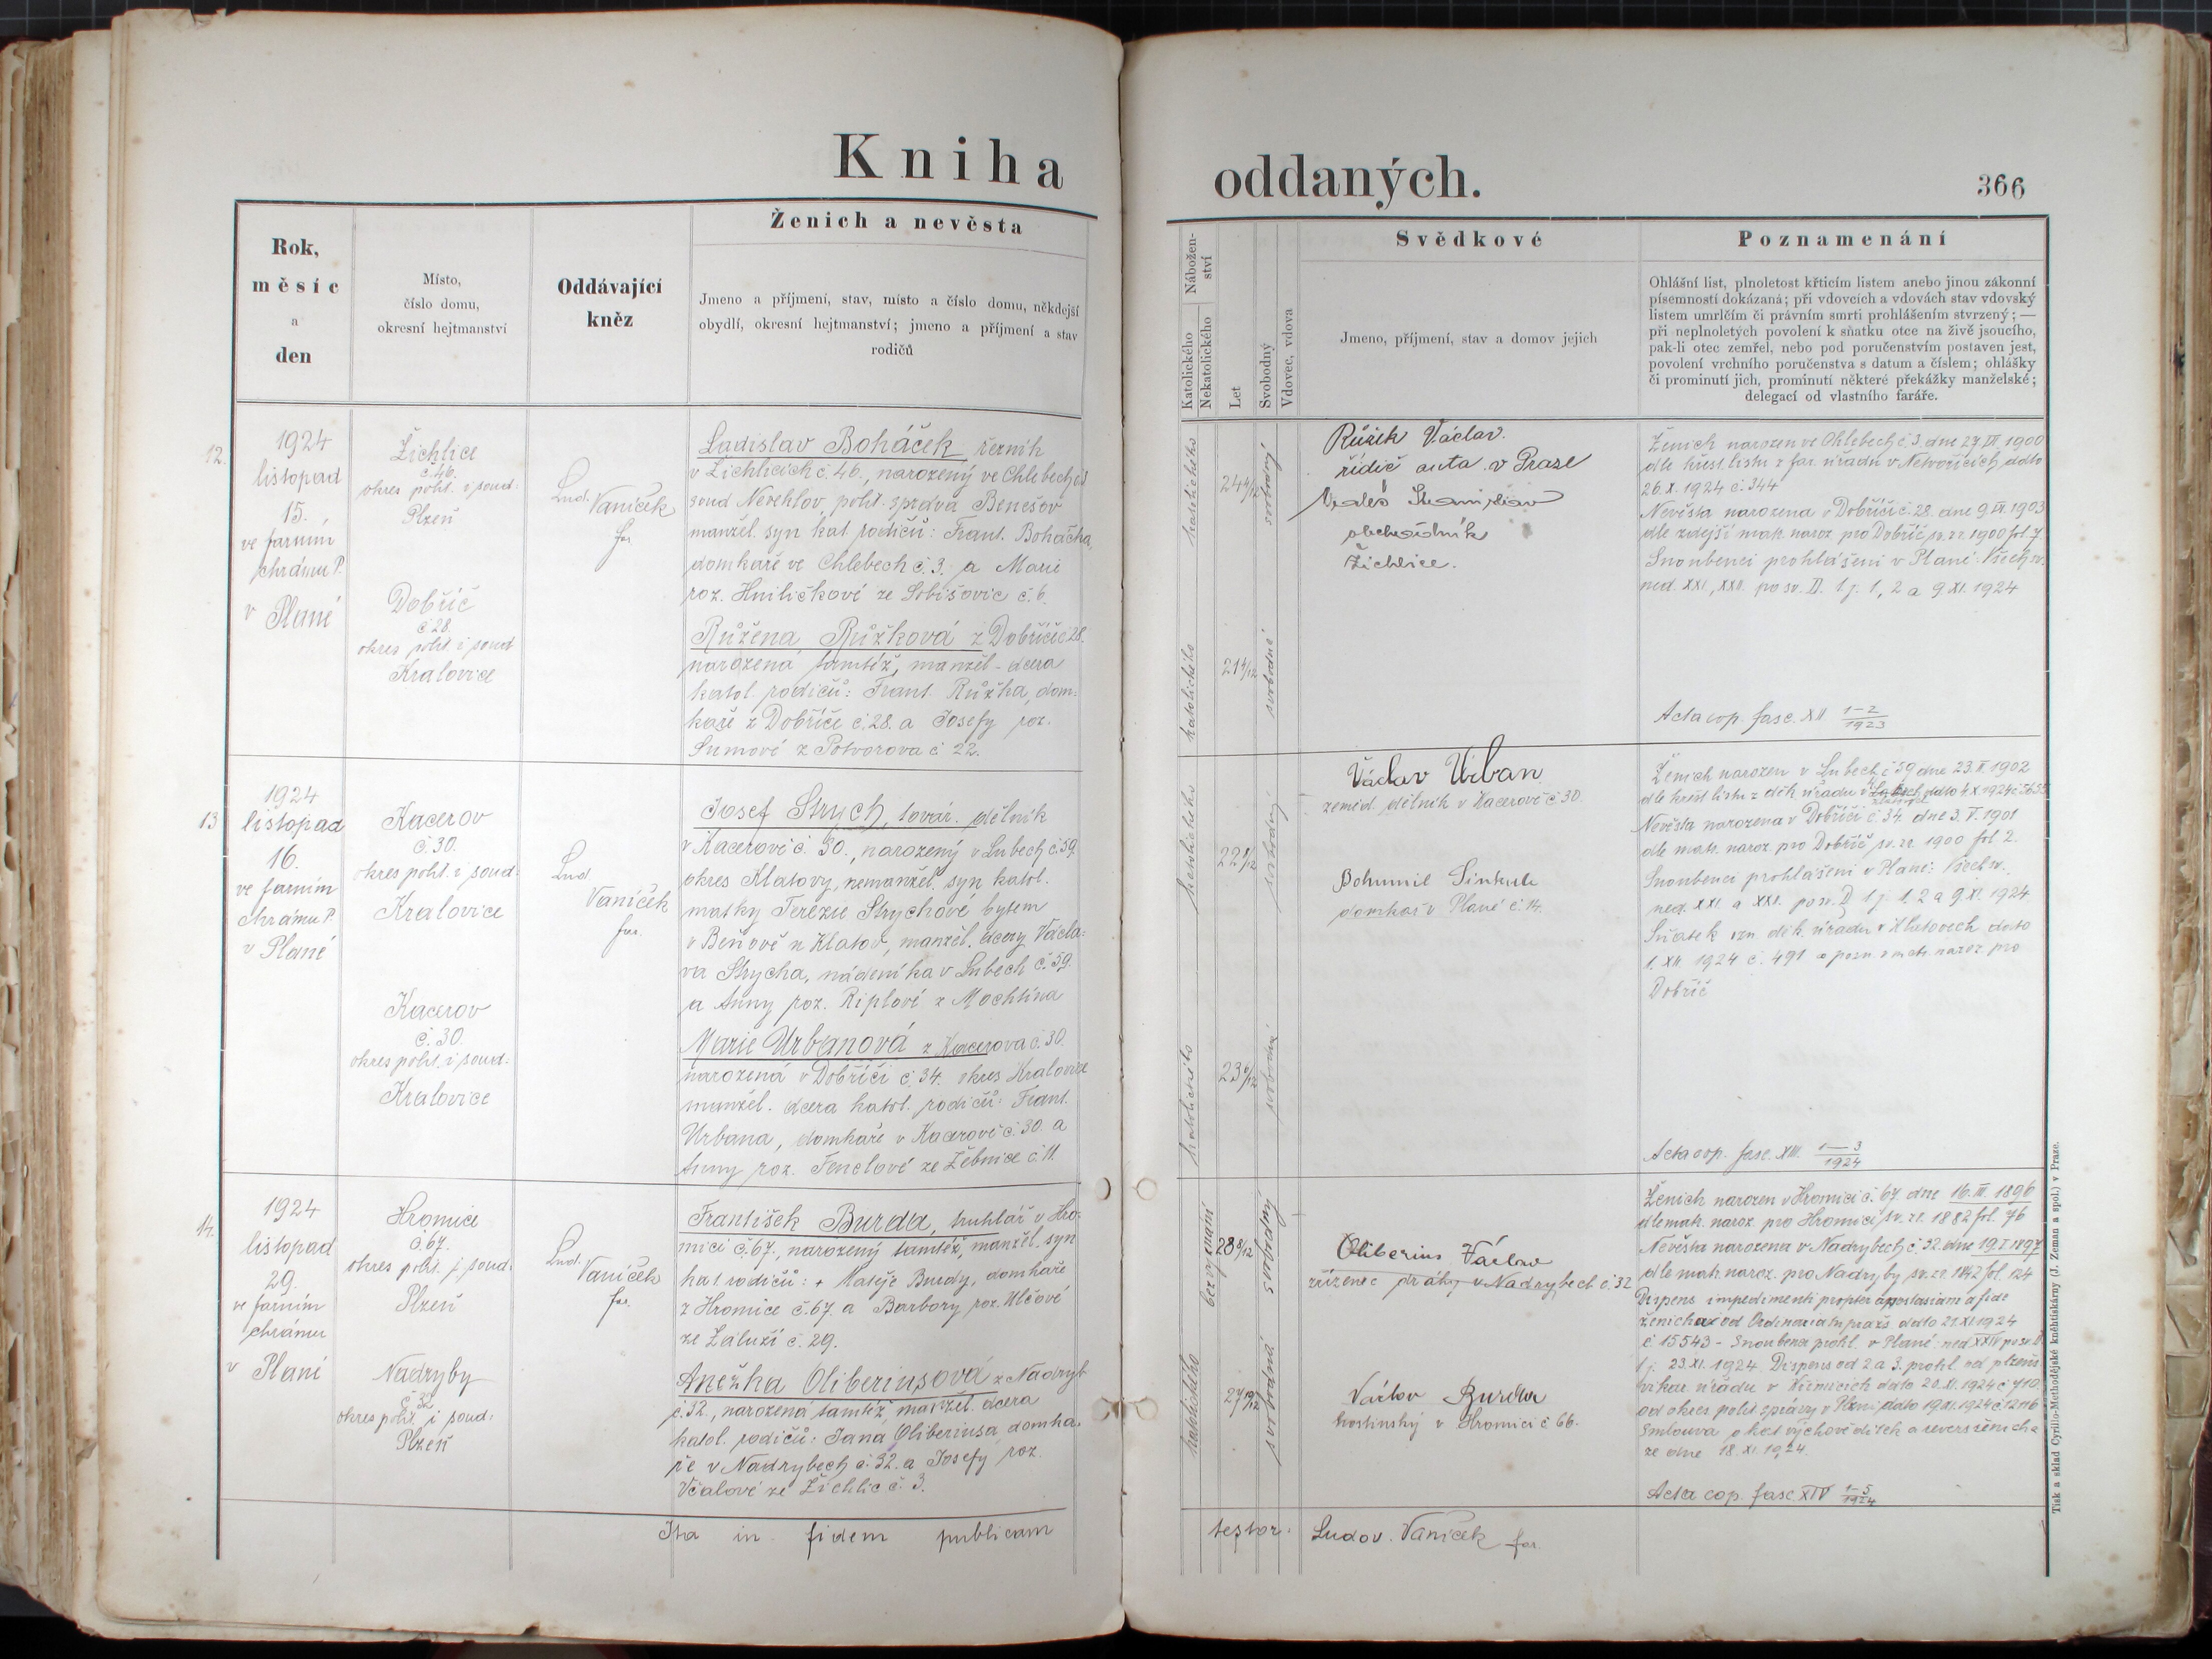 Kniha
oddaných.
366
Rok,
měsíc
a
den
Místo,
číslo domu,
okresní hejtmanství
Oddávající
kněz
Ženich a nevěsta
Jmeno a příjmení, stav, místo a číslo domu, někdejší
obydlí, okresní hejtmanství; jmeno a příjmení a stav
rodičů
Nábožen-
ství
Katolického
Nekatolického
Let
Svobodný
Vdovec, vdova
Svědkové
Jmeno, příjmení, stav a domov jejich
Poznamenání
Ohlášní list, plnoletost křticím listem anebo jinou zákonní
písemností dokázaná; při vdovcích a vdovách stav vdovský
listem umrlčím či právním smrti prohlášením stvrzený; —
při neplnoletých povolení k sňatku otce na živě jsoucího,
pak-li otec zemřel, nebo pod poručenstvím postaven jest,
povolení vrchního poručenstva s datum a číslem; ohlášky
či prominutí jich, prominutí některé překážky manželské;
delegací od vlastního faráře.
12.
1924
listopad
15.
ve farním
chrámu P.
v Plané
Žichlice
č. 46.
okres polit. i soud.
Plzeň
Dobříč
č 28.
okres polit. i soud
Kralovice
Lud. Vaníček
far.
Ladislav Boháček, řezník
v Žichlicích č. 46., narozený ve Chlebech č 3
soud Neveklov, polit. správa Benešov
manžel. syn kat. rodičů: Frant. Boháčka,
domkaře ve Chlebech č. 3. a Marie
roz. Hniličkové ze Sobišovic č. 6.
Růžena Růžková z Dobříče č 28.
narozená tamtéž, manžel. dcera
katol. rodičů: Frant. Růžka, dom-
kaře z Dobříče č. 28. a Josefy roz.
Šumové z Potvorova č 22.
katolického
24 4/12
svobodný
katolického
21 4/12
svobodná
Růžek Václav.
řidič auta v Praze
Stanislav
obchodník
Žichlice.
Ženich narozen ve Chlebech č. 3. dne 27. VI. 1900
dle křest. listu z far. úřadu v Netvořicích ddto
26. X. 1924 č. 344
Nevěsta narozena v Dobříči č. 28. dne 9. VI. 1903
dle zdejší matr. naroz. pro Dobříč sv. zr. 1900 fol. 7.
Snoubenci prohlášeni v Plané: Všech sv.
ned. XXI, XXII. po sv. D. t. j. 1, 2 a 9. XI. 1924
Acta cop. fasc. XII 1-2
1923
13
1924
listopad
16.
ve farním
chrámu P.
v Plané
Kacerov
č. 30.
okres polit. i soud.
Kralovice
Kacerov
č. 30.
okres polit. i soud.
Kralovice
Lud
Vaníček
far.
Josef Strych, továr. dělník
v Kacerově č. 30., narozený v Lubech č. 59
okres Klatovy, nemanžel. syn katol.
matky Terezie Strychové bytem
v Beňově u Klatov, manžel. dcery Václa-
va Strycha, nádeníka v Lubech č. 59.
a Anny roz. Riplové z Mochtína
Marie Urbanová z Kacerova č. 30.
narozená v Dobříči č. 34. okres Kralovice
manžel. dcera katol. rodičů: Frant.
Urbana, domkaře v Kacerově č. 30. a
Anny roz. Fenclové ze Žebnice č. 11.
katolického
svobodný
katolického
23 6/12
svobodná
Václav Urban
zeměd. dělník v Kacerově č 30.
Bohumil Sinkule
domkař v Plané č. 14.
Ženich narozen v Lubech č 59 dne 23. II. 1902
dle křest. listu z děk. úřadu v Lubech ddto 4. X. 1924 č.
Nevěsta narozena v Dobříči č. 34. dne 3. V. 1901
dle matr. naroz. pro Dobříč sv. zr. 1900 fol 2.
Snoubenci prohlášeni v Plané: Všech sv.,
ned. XXI. a XXII. po sv. D. t. j. 1. 2 a 9. XI. 1924
Sňatek ozn. děk. úřadu v Klatovech ddto
1. XII 1924 č. 491 a pozn. v matr. naroz. pro
Dobříč
Acta cop. fasc. XIII. 1-3
1924
14.
1924
listopad
29.
ve farním
chrámu
v Plané
Hromice
č. 67.
okres polit. i soud.
Plzeň
Nadryby
č 32
okres polit. i soud.
Plzeň
Lud.
Vaníček
far.
František Burda, truhlář v Hro-
mici č. 67., narozený tamtéž, manžel. syn
kat. rodičů: + Matěje Burdy, domkaře
z Hromice č. 67. a Barbory roz. Ulčové
ze Záluží č. 29.
Anežka Oliberiusová z Nadryb
č. 32., narozená tamtéž, manžel. dcera
katol. rodičů: Jana Oliberiusa, domka-
ře v Nadrybech č. 32. a Josefy roz.
Včalové ze Žichlic č. 3.
bez vyznání
28 8/12
svobodný
katolického
27 10/12
svobodná
Oliberius Václav
zřízenec dráhy v Nadrybech č. 32
Václav Burda
hostinský v Hromici č 66.
Ženich narozen v Hromici č. 67. dne 16. III. 1896
dle matr. naroz. pro Hromici sv. zr. 1882 fol. 76
Nevěsta narozena v Nadrybech č. 32. dne 19. I 1897
dle matr. naroz. pro Nadryby sv. zr. 1842 fol. 124
Dispens impedimenti propter apostasiam a fide
ženicha od Ordinariatu praž. ddto 21. XI. 1924
č. 15543 - Snoubenci prohl. v Plané: ned. XXIV po sv. D.
t. j. 23. XI. 1924. Dispens od 2. a 3. prohl. od plzeň.
vikar. úřadu v ddto 20. XI. 1924 č 710
od okres. polit. správy v Plzni ddto 19. XI. 1924 č.
Smlouva o kat. výchově dítek a revers ženicha
ze dne 18. XI. 1924.
Acta cop. fasc. XIV 1-5
1924
Ita in fidem publicam
testor: Ludov. Vaníček far.
Tisk a sklad Cyrillo-Methodějské knihtiskárny (J. Zeman a spol.) v Praze.